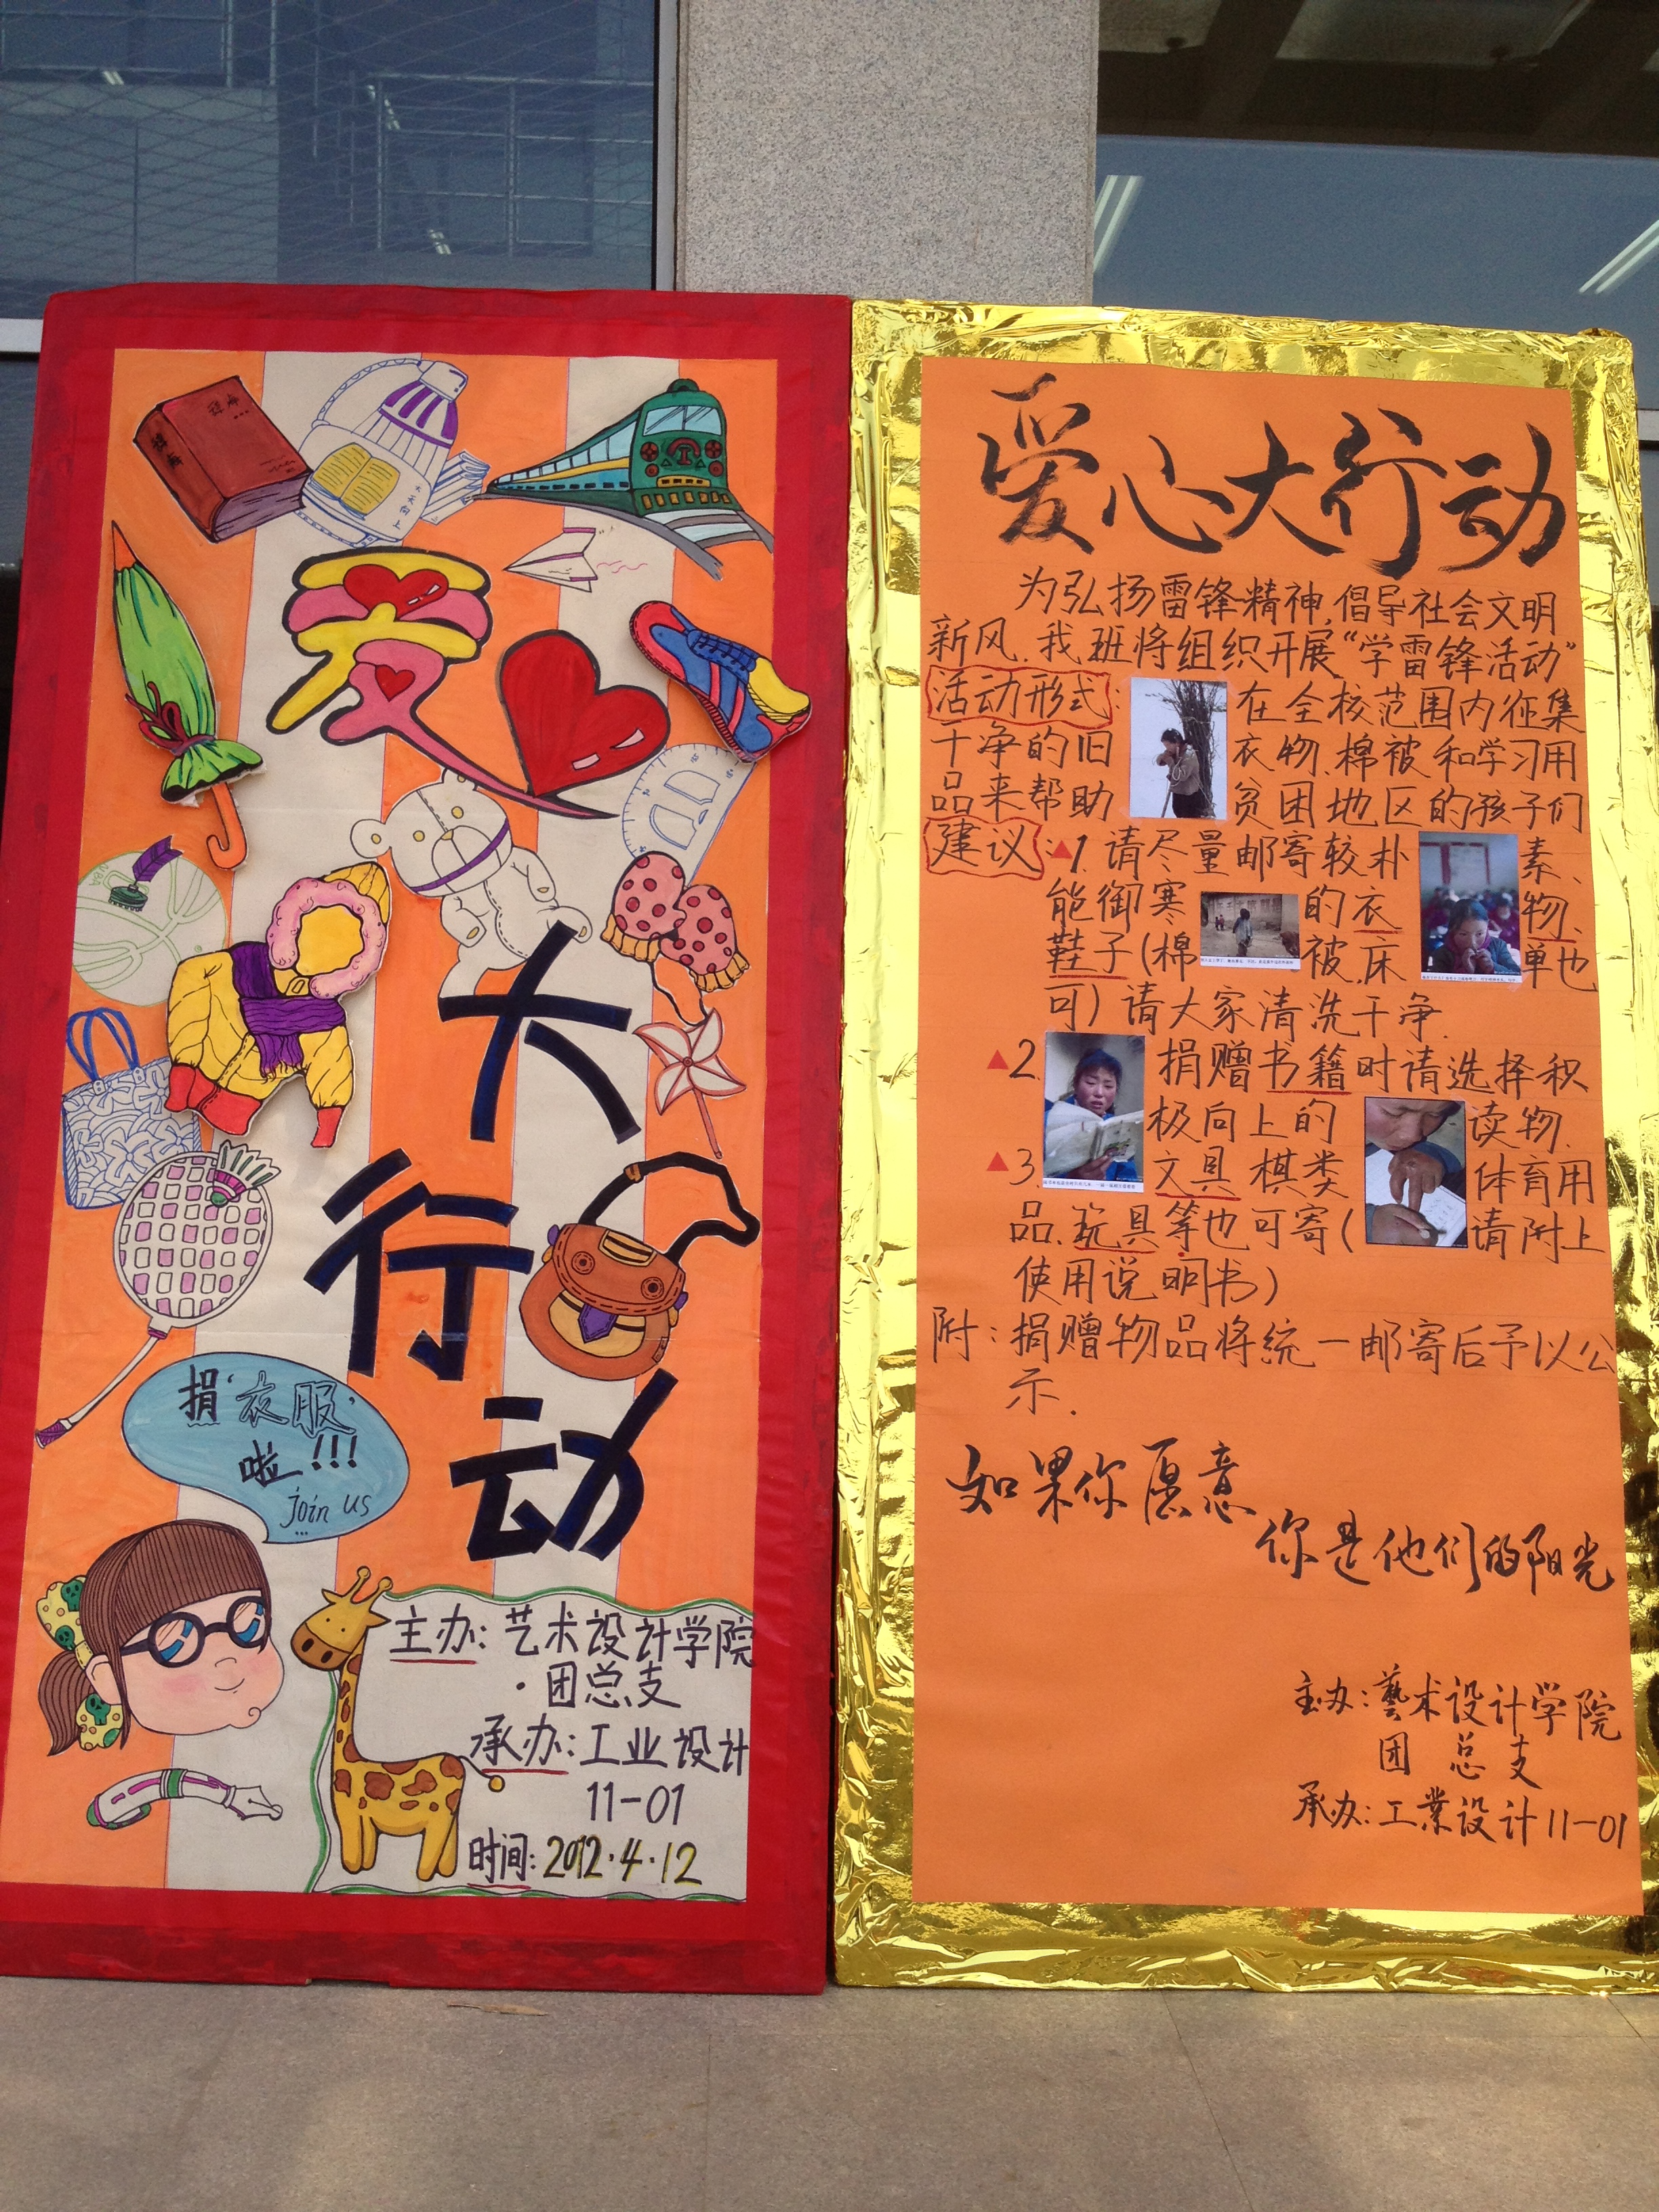 爱
大
行
动
NBA
天天向上
捐'衣服'
啦!!!
join us
...
主办:艺术设计学院
·团总支
承办:工业设计
11-01
时间:2012.4.12
爱心大行动
为弘扬雷锋精神,倡导社会文明
新风、我班将组织开展“学雷锋活动”
活动形式:在全校范围内征集
干净的旧衣物、棉被和学习用
品来帮助贫困地区的孩子们
建议:▲1.请尽量邮寄较朴素、
能御寒的衣物、
鞋子(棉被、床单也
可)请大家清洗干净.
▲2.捐赠书籍时请选择积
极向上的读物.
▲3文具棋类体育用
品、玩具等也可寄(请附上
使用说明书)
附:捐赠物品将统一邮寄后予以公
示.
如果你愿意
你是他们的阳光
主办:藝术设计学院
团总支
承办:工業设计11-01